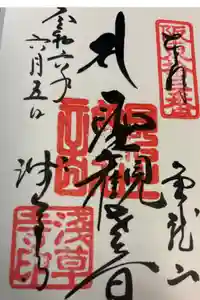 奉拝
金龍山
聖観世音
令和六年
六月五日
浅草寺
浅草寺印